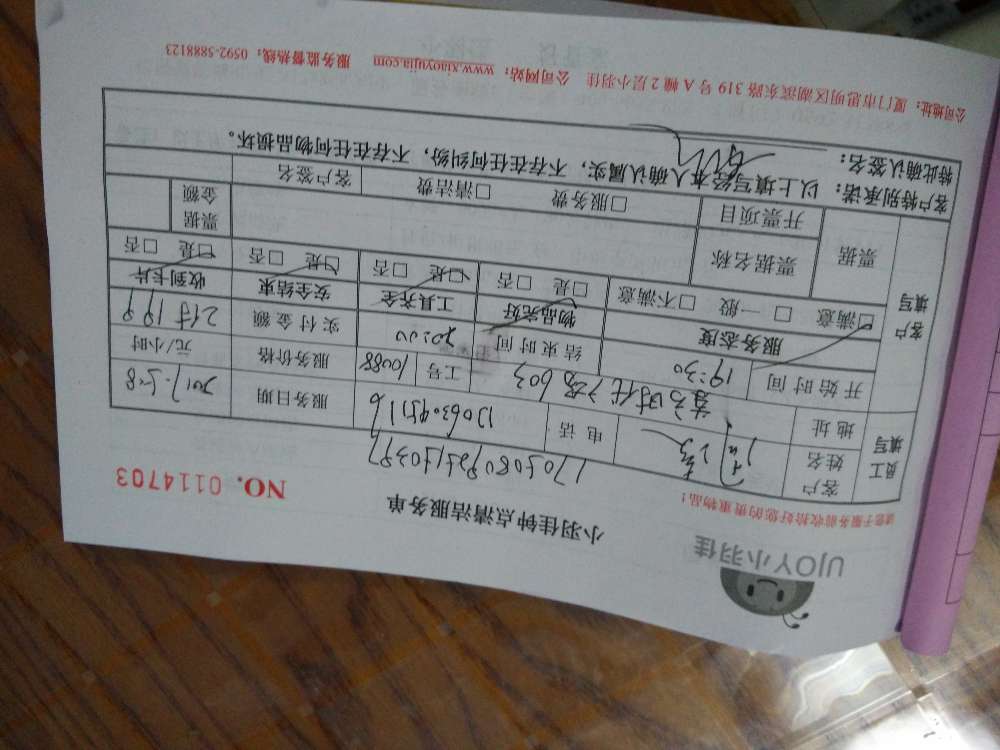 UJOY小羽佳
小羽佳钟点清洁服务单
请您于服务前收拾好您的贵重物品！
NO. 0114703
员工填写
客户姓名 电话 13063045116 服务日期 2017.5.8
地址 603 工号 10088 服务价格 元/小时
开始时间 19:30 结束时间 20:00 实付金额 199
客户填写
服务态度 物品完好 工具齐全 安全结束 收到卡片
□满意 □一般 □不满意 □是 □否 □是 □否 □是 □否 □是 □否
票据 票据名称 开票项目 □服务费 □清洁费 客户签名 票据金额
客户特别承诺：以上填写经本人确认属实，不存在任何纠纷，不存在任何物品损坏。
特此确认签名：
公司地址：厦门市思明区湖滨东路 319 号 A 幢 2 层小羽佳 公司网站：www.xiaoyujia.com 服务监督热线：0592-5888123